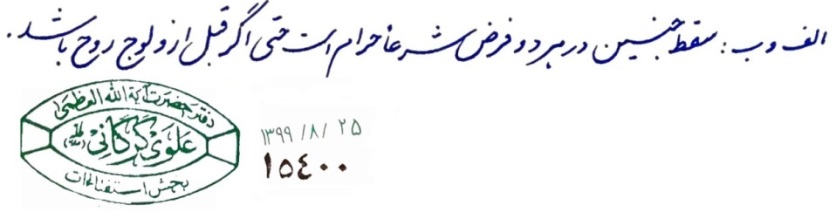 الف و ب: سقط جنین در هر دو فرض شرعاً حرام است حتی اگر قبل از ولوج روح باشد.
دفتر حضرت آیة الله العظمی
علوی گرگانی
بخش استفتائات
۱۳۹۹ / ۸ / ۲۵
۱۵۴۰۰